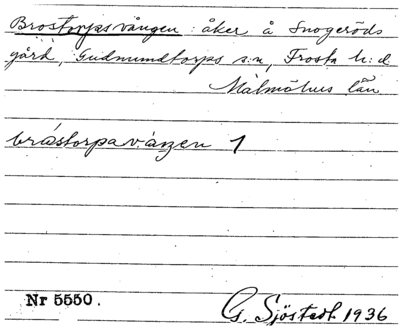 Brostorpsvången : åker å Snogeröds
gård, Gudmundtorps s:n, Frosta h:d
Malmöhus län
bråstorpavången 1
Nr 5550.
G. Sjöstedt. 1936